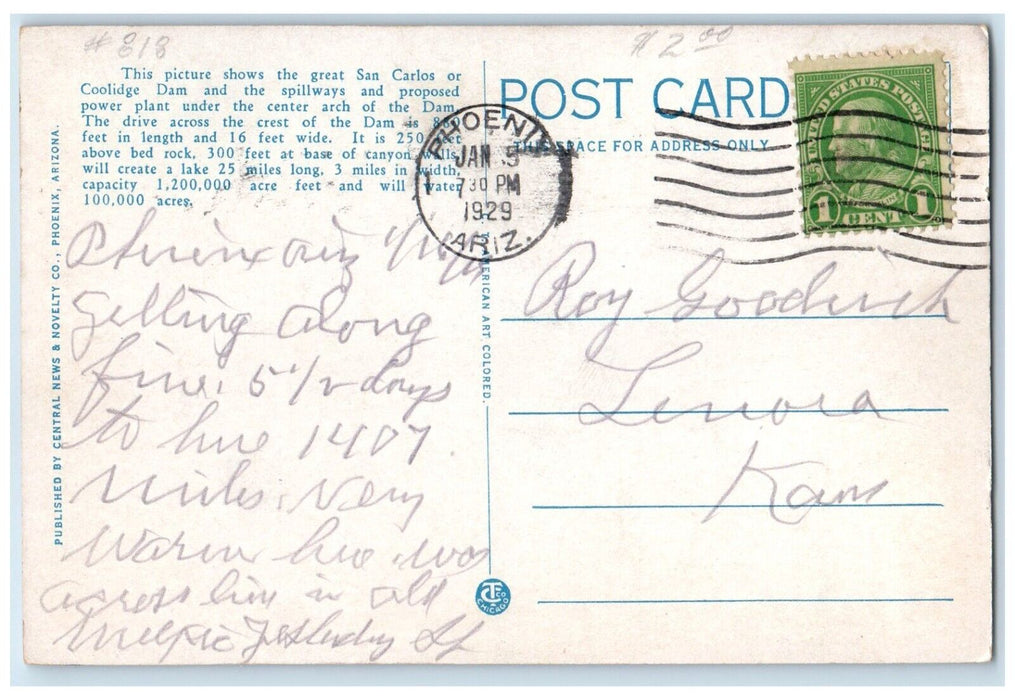 # 818
$ 2 00
This picture shows the great San Carlos or
Coolidge Dam and the spillways and proposed
power plant under the center arch of the Dam.
The drive across the crest of the Dam is
feet in length and 16 feet wide. It is 250 feet
above bed rock, 300 feet at base of canyon walls,
will create a lake 25 miles long, 3 miles in width,
capacity 1,200,000 acre feet and will water
100,000 acres.
POST CARD
THIS SPACE FOR ADDRESS ONLY
UNITED STATES POSTAGE
1 CENT 1
PHOENIX
JAN
7 30 PM
1929
ARIZ.
PUBLISHED BY CENTRAL NEWS & NOVELTY CO., PHOENIX, ARIZONA.
AMERICAN ART COLORED.
CHICAGO
Phoenix Ariz
Getting along
fine. 5 1/2 days
to here 1407
miles. Very
Warm here. was
across line in old
Mexico
Roy Goodrich
Lenora
Kans